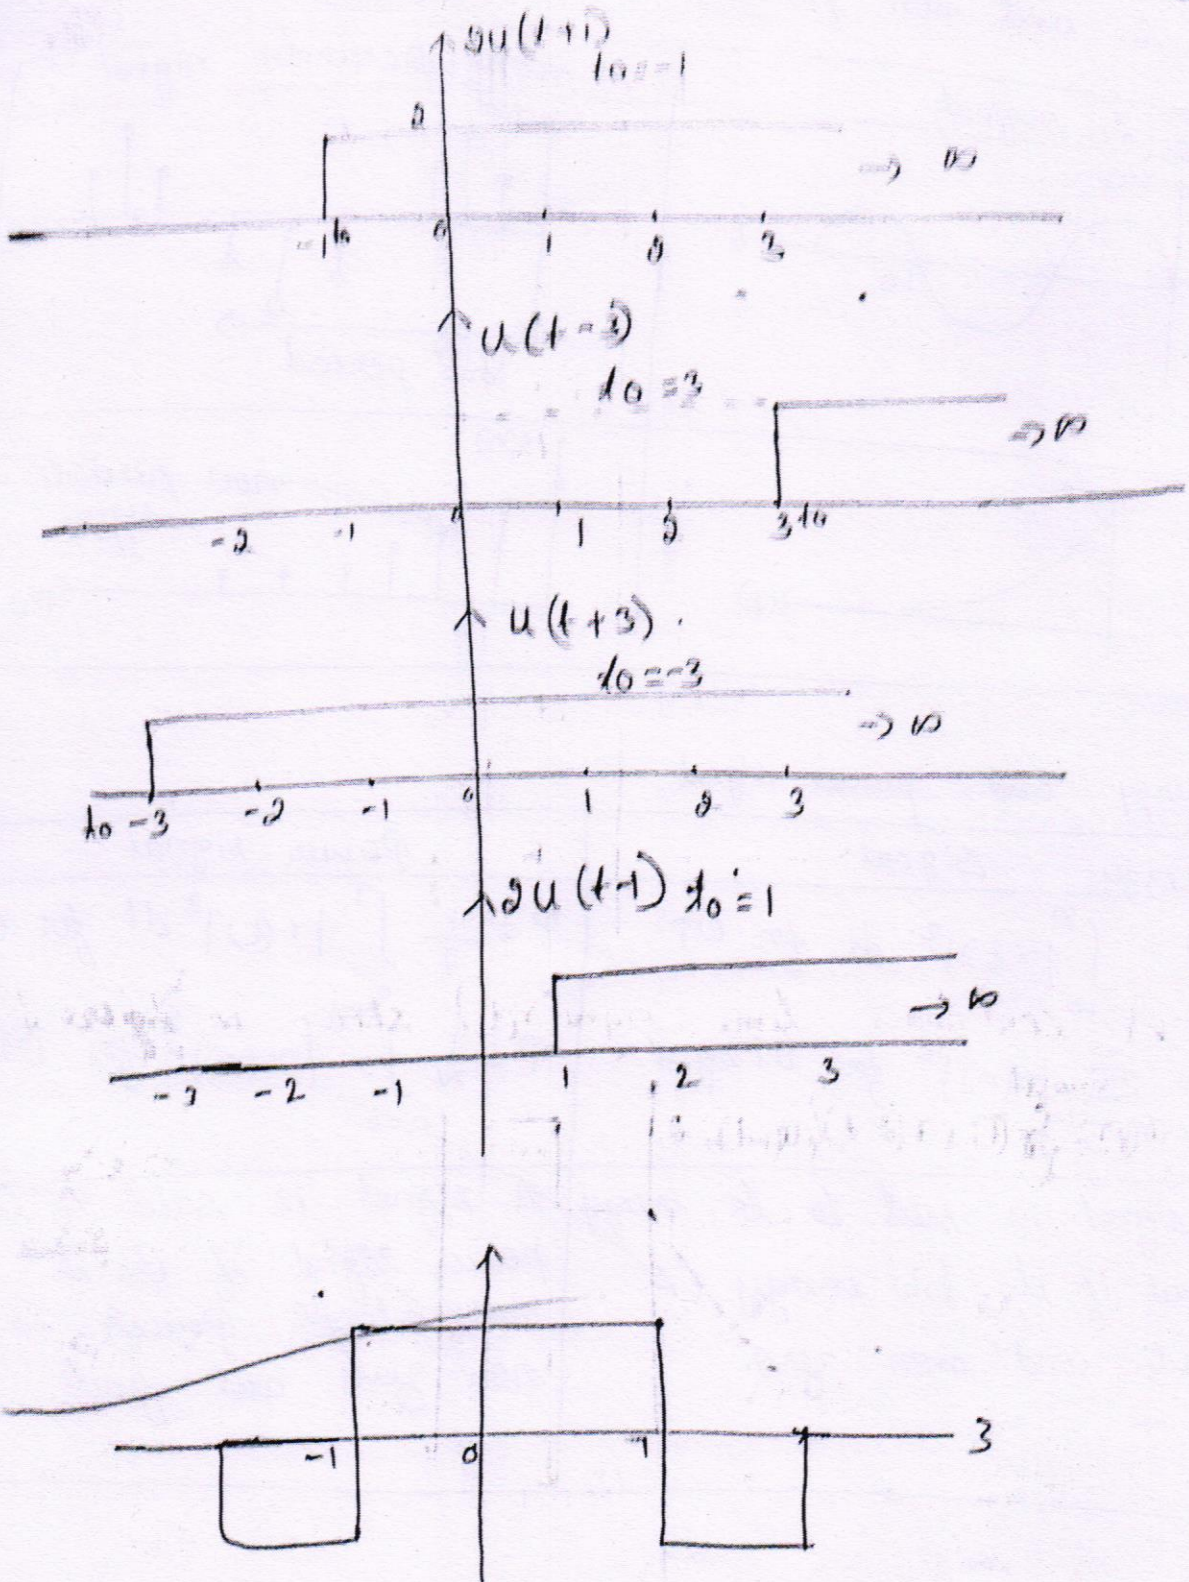 2u(t+1)
t0=-1
2
→ ∞
-1 t0 0 1 2 3
u(t-3)
t0=3
→ ∞
-2 -1 0 1 2 3 t0
u(t+3)
t0=-3
→ ∞
t0 -3 -2 -1 0 1 2 3
2u(t-1) t0=1
→ ∞
-3 -2 -1 1 2 3
-1 0 1 3